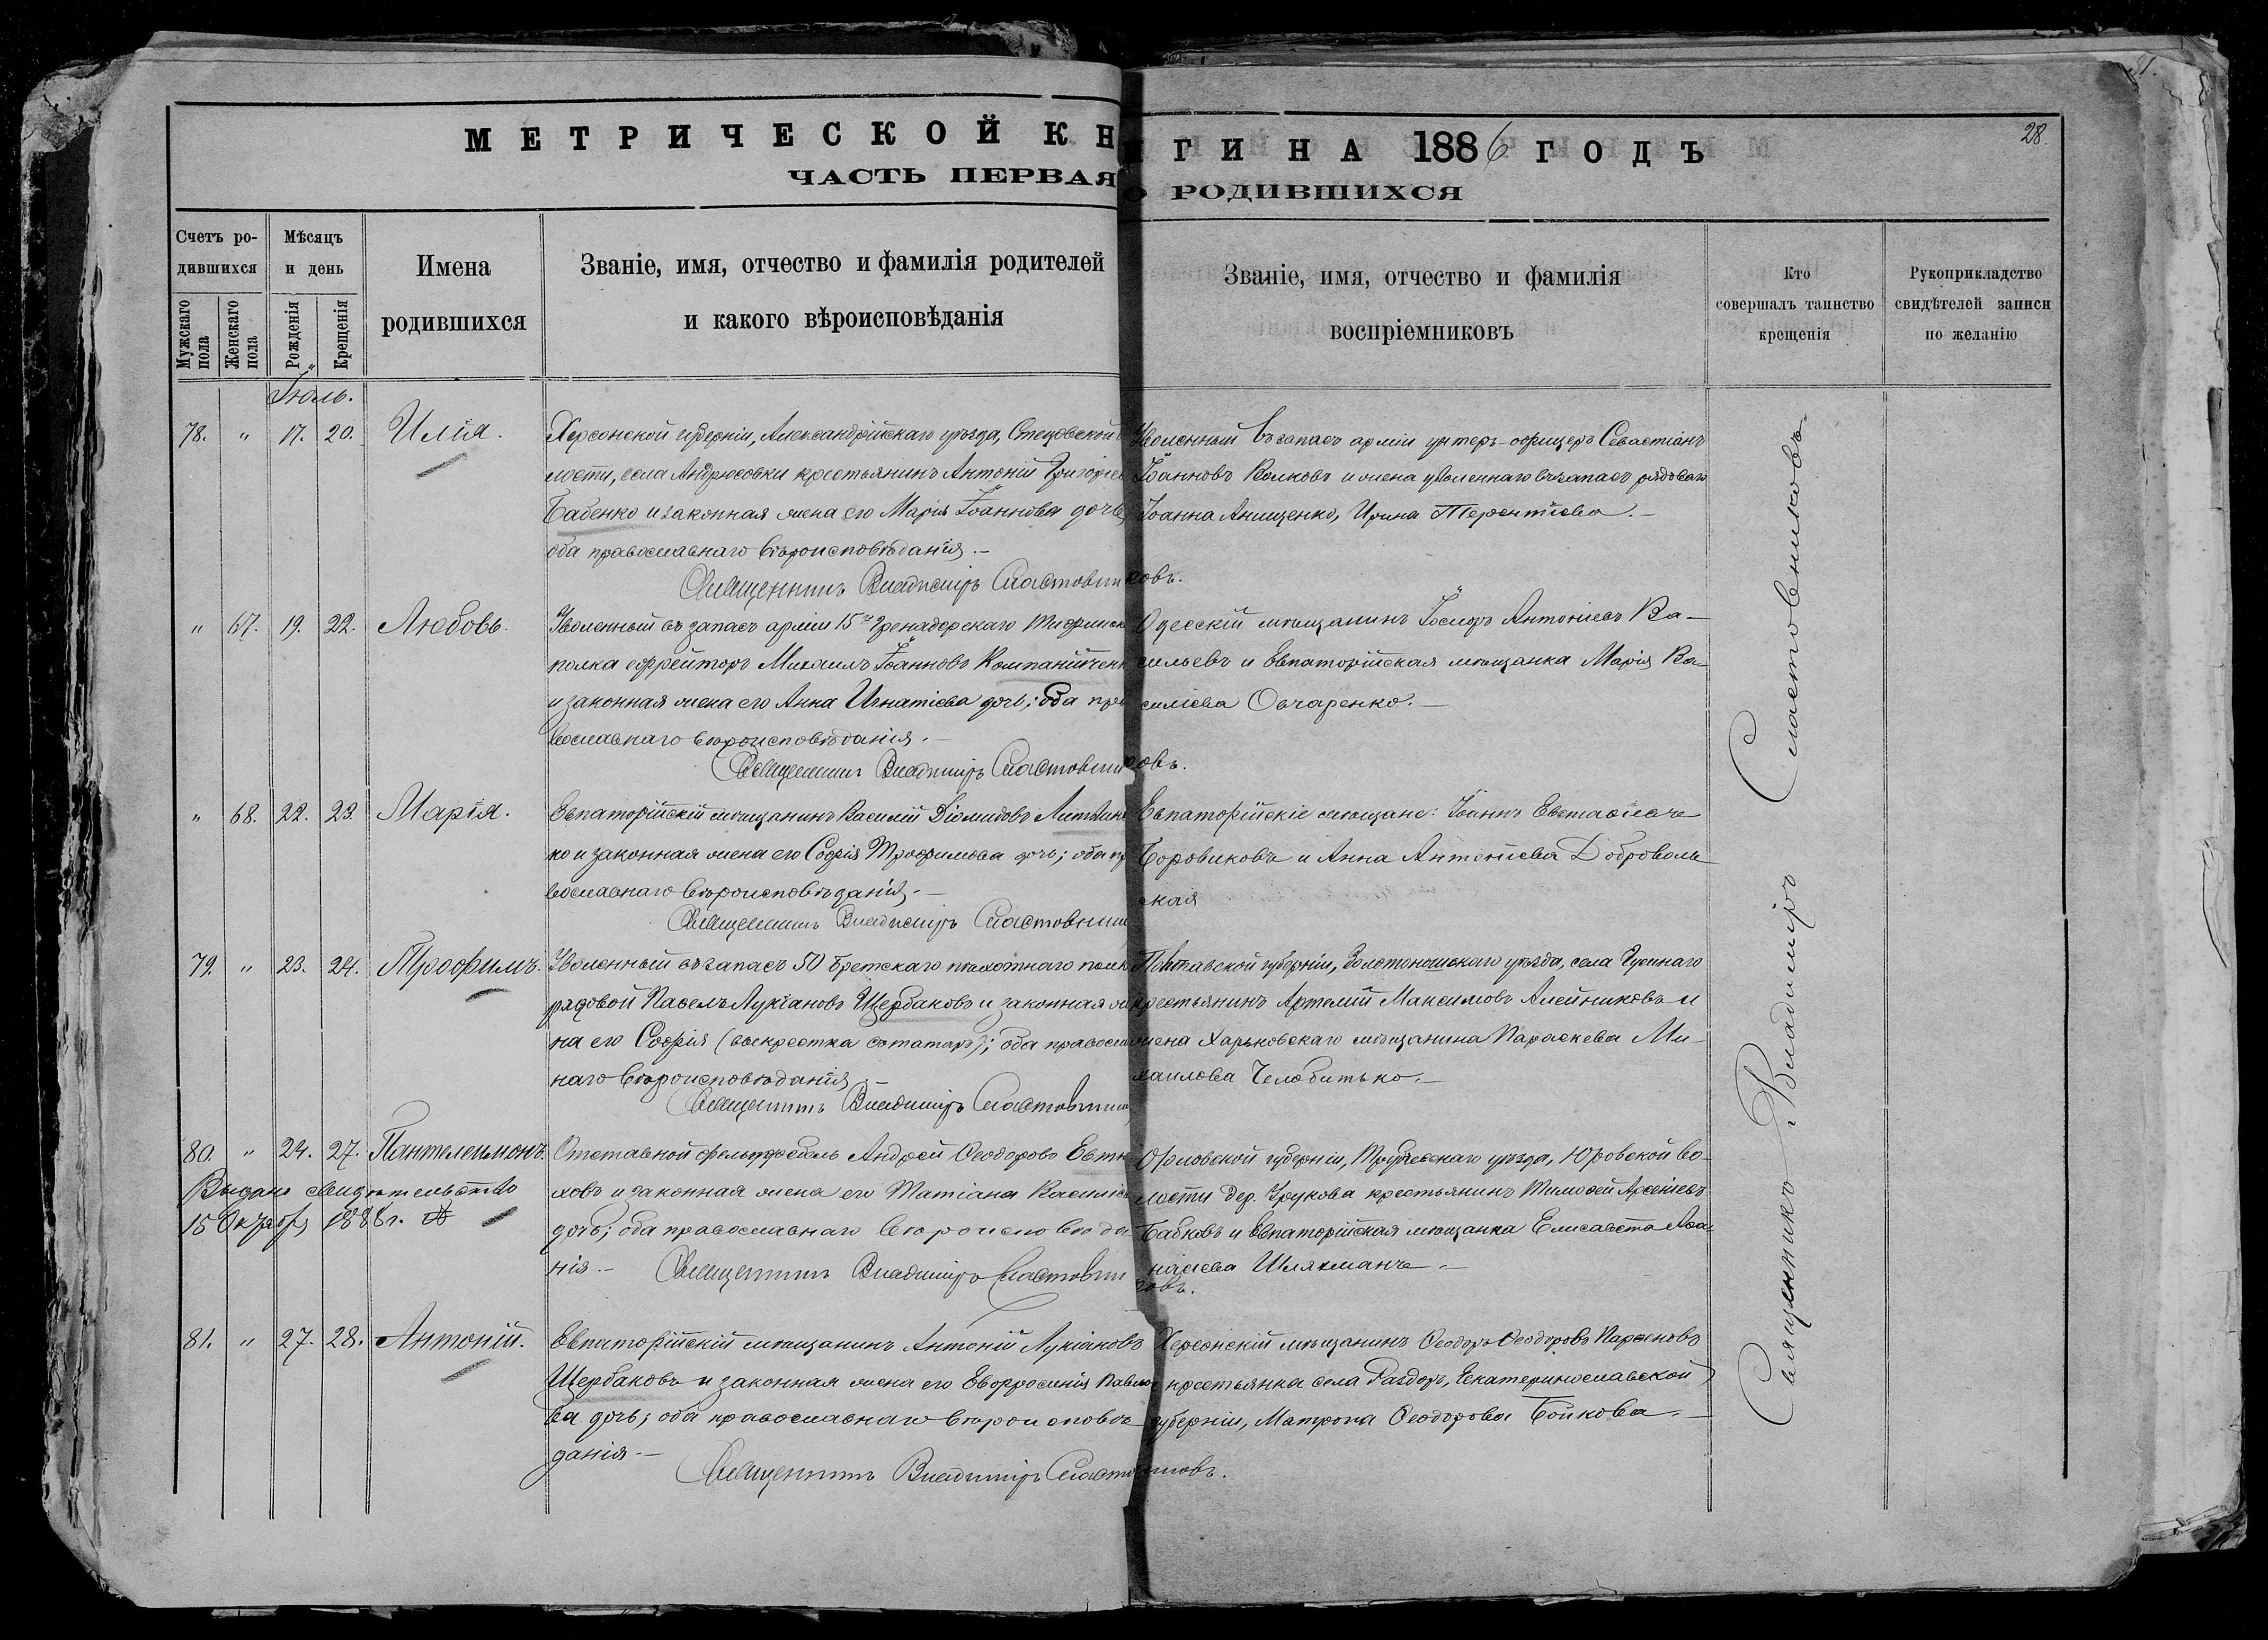 31.
28.
МЕТРИЧЕСКОЙ КН
ИГИ НА 1886 ГОДЪ
ЧАСТЬ ПЕРВАЯ
О РОДИВШИХСЯ
Счетъ родившихся
Мужскаго пола
Женскаго пола
Мѣсяцъ и день
Рожденія
Крещенія
Имена родившихся
Званіе, имя, отчество и фамилія родителей
и какого вѣроисповѣданія
Званіе, имя, отчество и фамилія
воспріемниковъ
Кто
совершалъ таинство
крещенія
Рукоприкладство
свидѣтелей записи
по желанію
Іюль.
78. " 17. 20. Илія.
Херсонской губерніи, Александрійскаго уѣзда, Стецовской
лости, села Андрюсовки крестьянинъ Антоній Григоріев
Бабенко и законная жена его Марія Іоаннова дочь,
оба православнаго вѣроисповѣданія. –
Священникъ Владиміръ Сластовниковъ.
Уволенный въ запасъ арміи унтеръ-офицеръ Севастіанъ
Іоанновъ Волковъ и жена уволеннаго въ запасъ рядоваго
Іоанна Анищенко, Ирина Терентіева. –
" 67. 19. 22. Любовь.
Уволенный въ запасъ арміи 15го Гренадерскаго Тифлисск
полка ефрейторъ Михаилъ Іоанновъ Компанійченк
и законная жена его Анна Игнатіева дочь; оба пра
вославнаго вѣроисповѣданія. –
Священникъ Владиміръ Сластовниковъ.
Одесскій мѣщанинъ Іосифъ Антоніевъ Ва-
сильевъ и Евпаторійская мѣщанка Марія Ва-
силіева Овчаренко. –
" 68. 22. 23. Марія.
Евпаторійскій мѣщанинъ Василій Діомидовъ Литвин
ко и законная жена его Софія Трофимова дочь; оба пр
вославнаго вѣроисповѣданія. –
Священникъ Владиміръ Сластовник
Евпаторійскіе мѣщане: Іоаннъ Евстафіевъ
Боровиковъ и Анна Антоніева Доброволь
ская
79. " 23. 24. Трофимъ.
Уволенный въ запасъ 50 Бѣлостокскаго пѣхотнаго полк
рядовой Павелъ Лукіановъ Щербаковъ и законная же
на его Софія (выкрестка); оба правосла
наго вѣроисповѣданія. –
Священникъ Владиміръ Сластовник
Полтавской губерніи, Золотоношскаго уѣзда, села
крестьянинъ Артемій Максимовъ Алейниковъ и
жена Харьковскаго мѣщанина Параскева Ми-
хаилова Челобитько. –
80. " 24. 27. Пантелеимонъ.
Выдано свидѣтельство
15 Октября 1888 г.
Отставной фельдфебель Андрей Ѳеодоровъ Евти
ховъ и законная жена его Татіана Василіев
дочь; оба православнаго вѣроисповѣда
нія. – Священникъ Владиміръ Сластовниковъ.
Орловской губерніи, Трубчевскаго уѣзда, Юровской во-
лости дер. крестьянинъ Тимоѳей Арсеніевъ
Бабковъ и Евпаторійская мѣщанка Елисавета Аѳа-
насіева Шляхманъ. –
81. " 27. 28. Антоній.
Евпаторійскій мѣщанинъ Антоній Лукіановъ
Щербаковъ и законная жена его Евфросинія Павло-
ва дочь; оба православнаго вѣроисповѣ-
данія –
Священникъ Владиміръ Сластовниковъ.
Херсонскій мѣщанинъ Ѳеодоръ Ѳеодоровъ Парѳеновъ
крестьянка села Раздоръ, Екатеринославской
губерніи, Матрона Ѳеодорова Бойкова. –
Священникъ Владиміръ Сластовниковъ